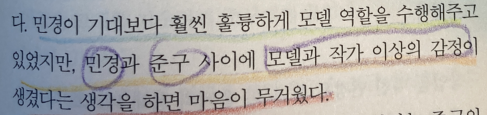 다. 민경이 기대보다 훨씬 훌륭하게 모델 역할을 수행해주고
있었지만, 민경과 준구 사이에 모델과 작가 이상의 감정이
생겼다는 생각을 하면 마음이 무거웠다.